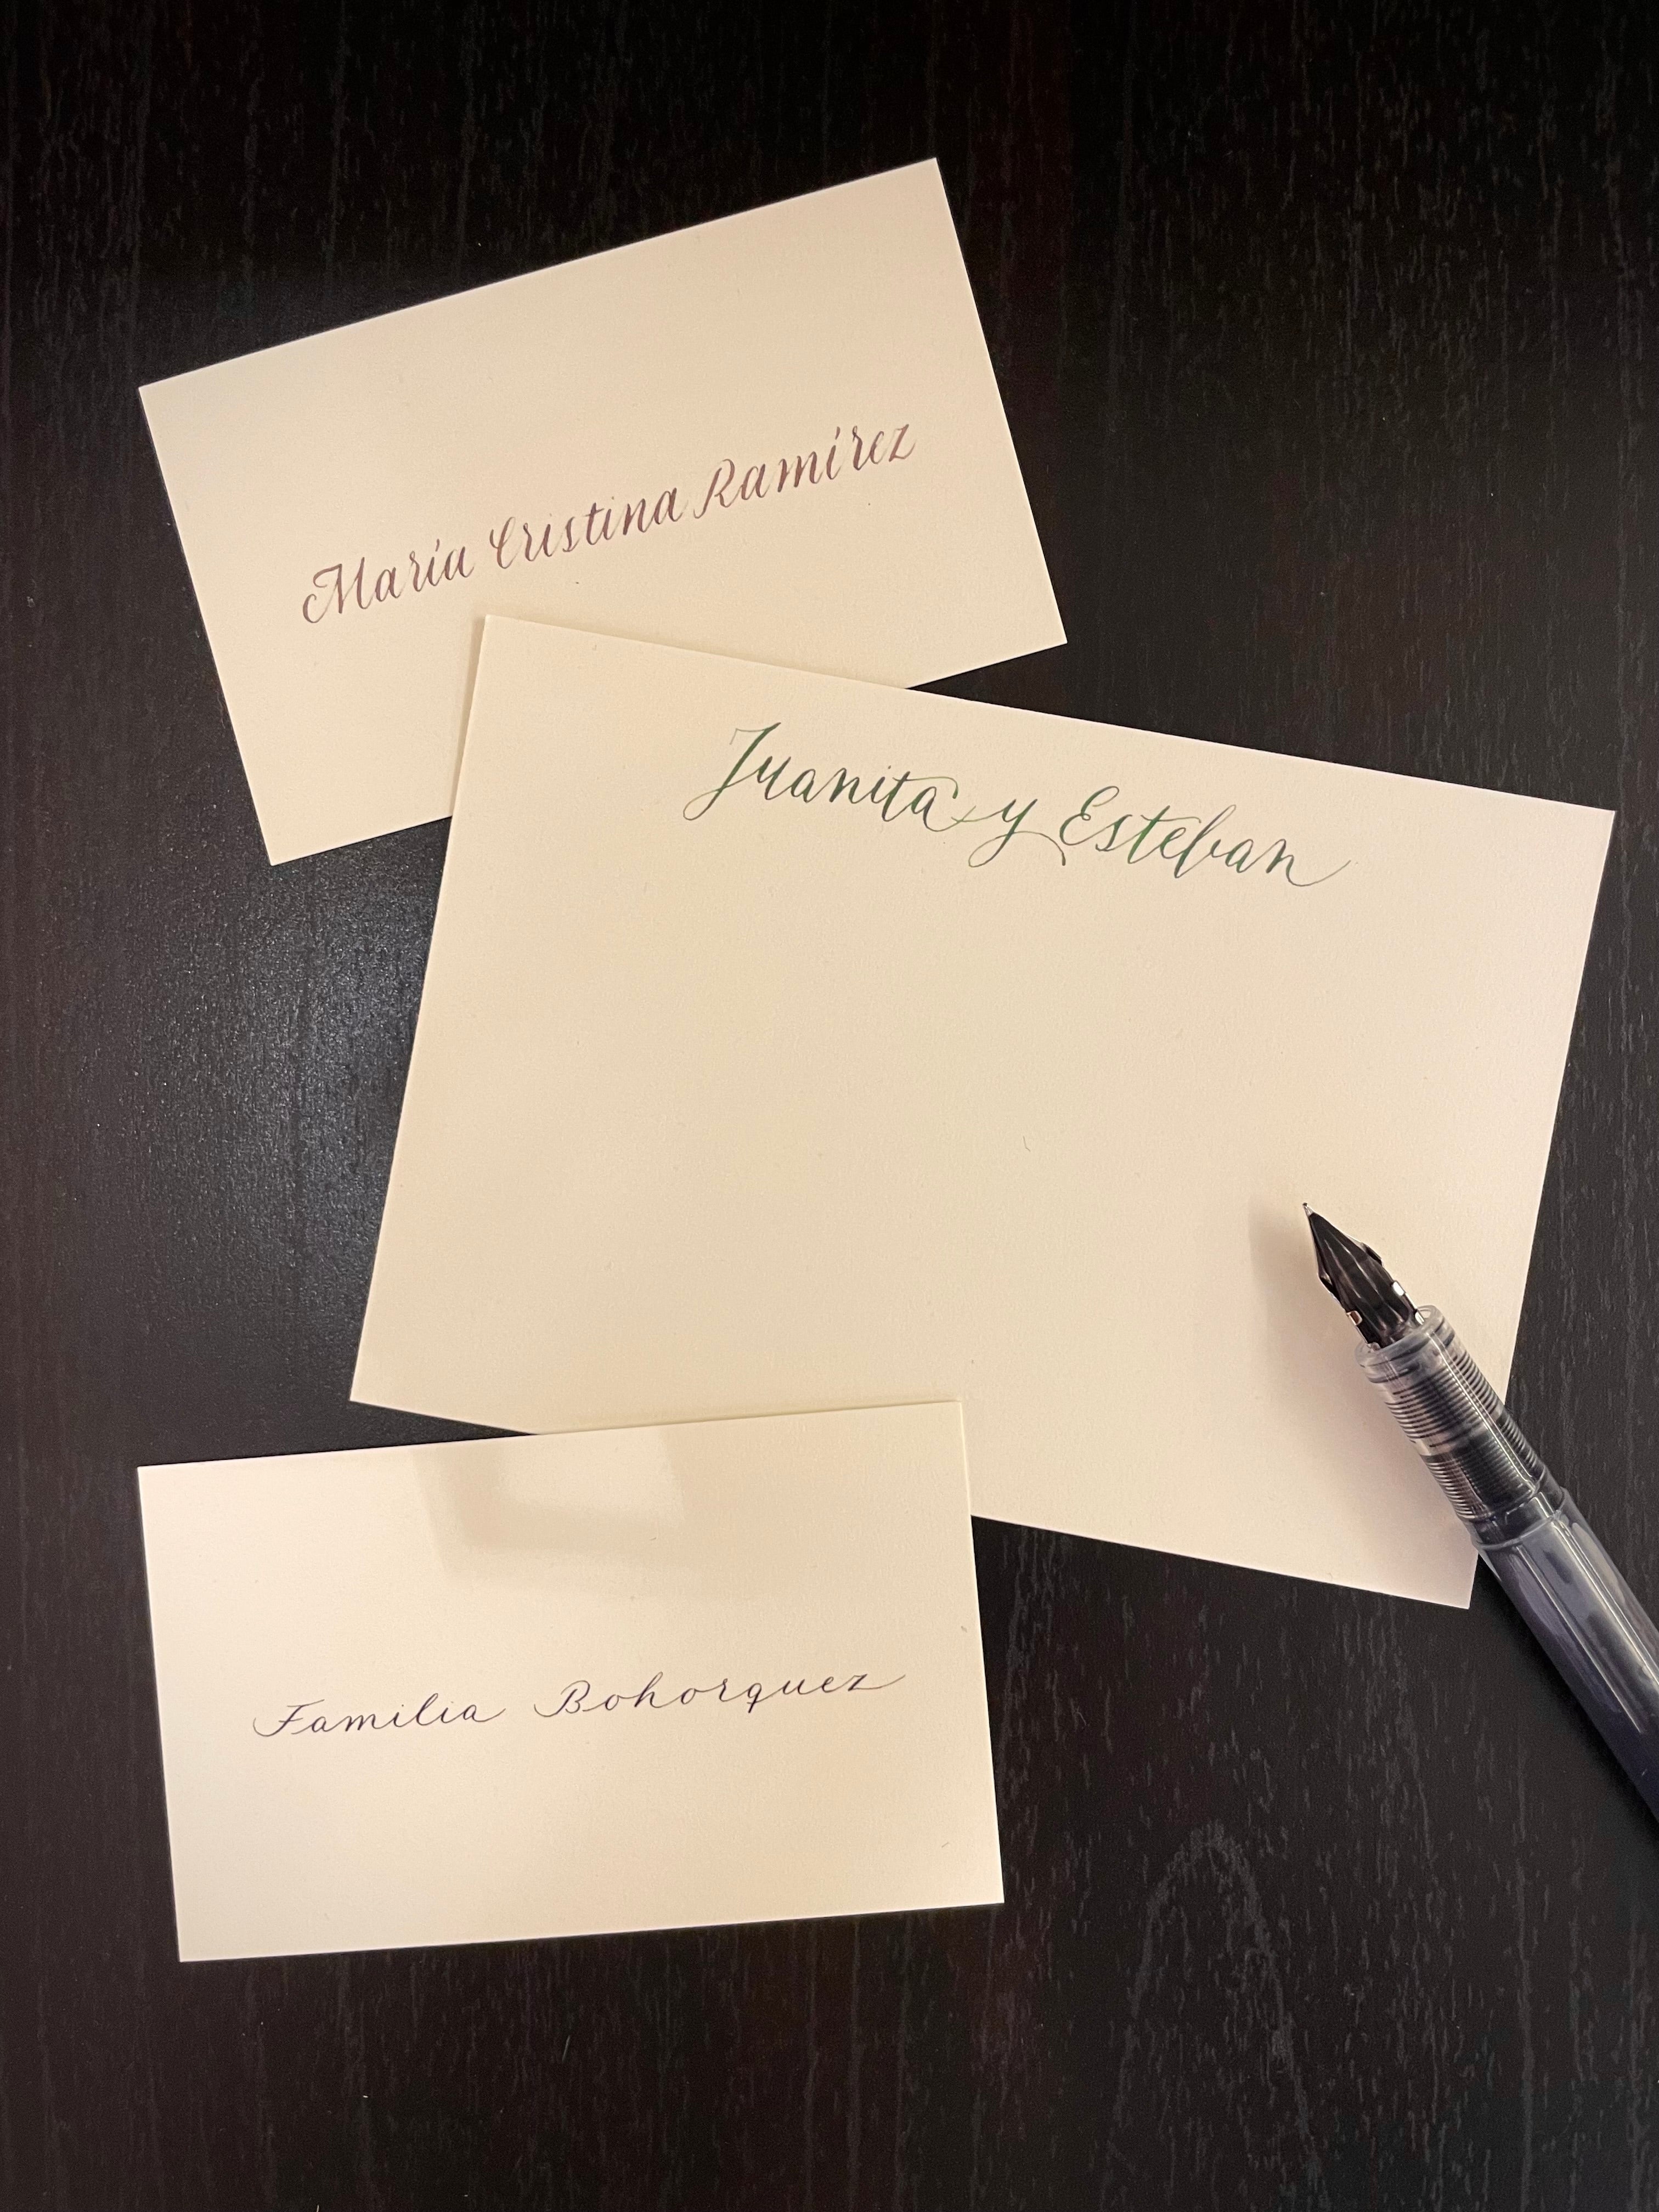 María Cristina Ramírez
Juanita y Esteban
Familia Bohorquez